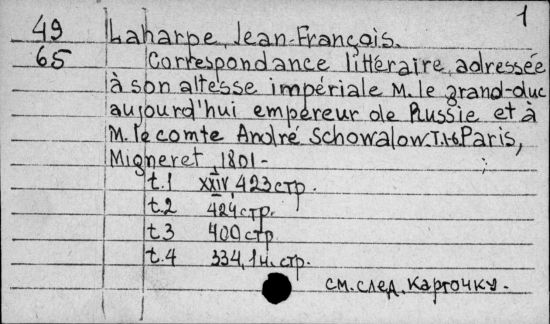 1
49 Laharpe, Jean-François.
65 Correspondance littéraire, adressée
à son altesse impériale M. le grand-duc
aujourd'hui empereur de Russie et à
M. le comte André Schowalow. T.1-6. Paris,
Migneret, 1801-
t.1 XXIV, 423 стр.
t.2 424 стр.
t.3 400 стр.
t.4 334, 1 н. стр.
см. след. карточку.